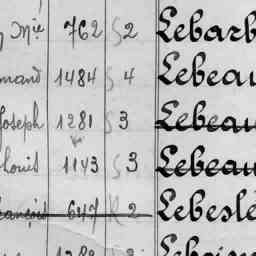 Mie 762 S 2 Lebarb
mand 1484 S 4 Lebeau
Joseph 1281 S 3 Lebeau
Louis 1143 S 3 Lebeau
rançois 647 R 2 Lebesle